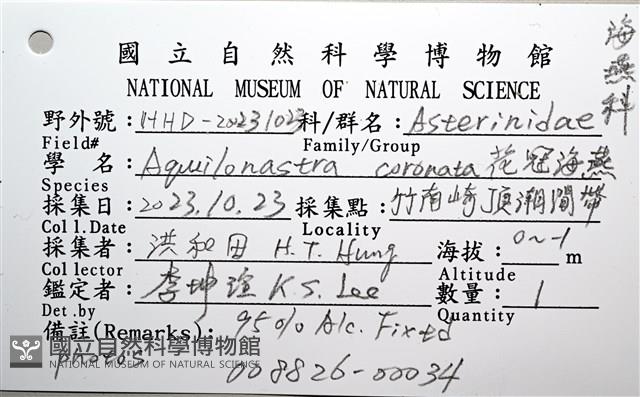 海燕科
國立自然科學博物館
NATIONAL MUSEUM OF NATURAL SCIENCE
野外號：HHD-20231023 科/群名：Asterinidae
Field# Family/Group
學 名：Aquilonastra coronata 花冠海燕
Species
採集日：2023.10.23 採集點：竹南崎頂潮間帶
Coll.Date Locality
採集者：洪和田 H.T. Hung 海拔：0~-1 m
Collector Altitude
鑑定者：李坤瑄 K.S. Lee 數量：1
Det.by Quantity
備註(Remarks)： 95% Alc. Fixed
photos 008826-00034
國立自然科學博物館
NATIONAL MUSEUM OF NATURAL SCIENCE